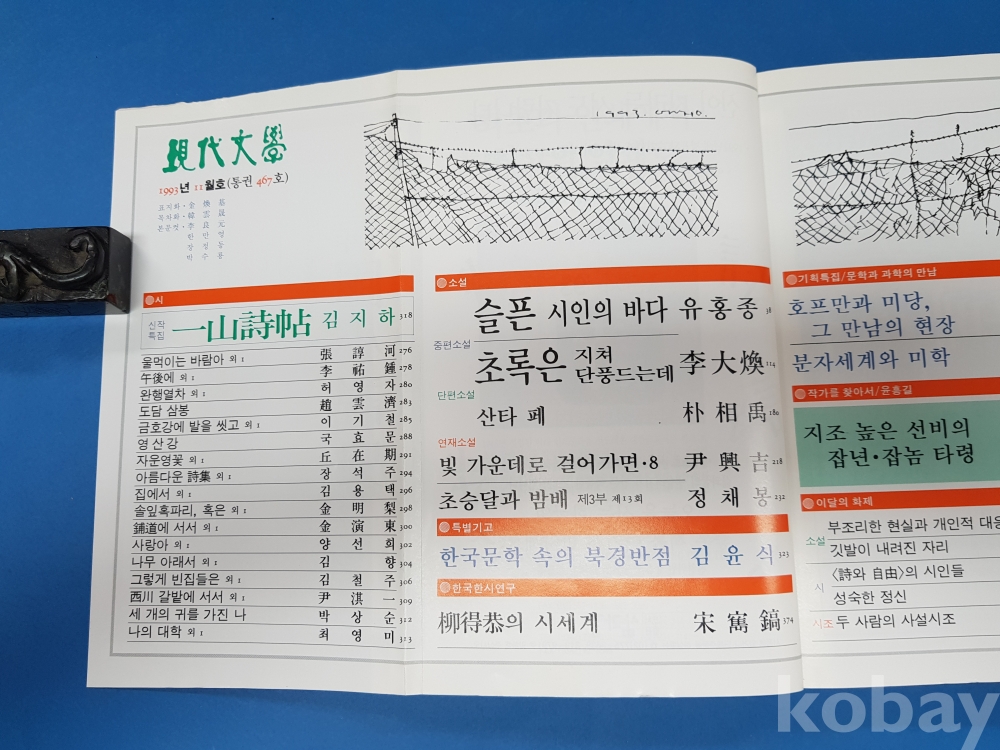 現代文學
1993년 11월호(통권 467호)
표지화·金
목차화·韓雲晟
본문컷·李良元
한만영
장정동
박수룡
1993.
시
신작특집 一山詩帖 김지하 318
울먹이는 바람아 외1 張諄河 276
午後에 외1 李祐鍾 278
완행열차 외1 허영자 280
도담 삼봉 趙雲濟 283
금호강에 발을 씻고 외1 이기철 285
영산강 국효문 288
자운영꽃 외1 丘在期 291
아름다운 詩集 외1 장석주 294
집에서 외1 김용택 296
솔잎혹파리, 혹은 외1 金明梨 298
鋪道에 서서 외1 金演東 300
사랑아 외1 양선희 302
나무 아래서 외1 김향 304
그렇게 빈집들은 외1 김철주 306
西川 갈밭에 서서 외1 尹淇一 309
세 개의 귀를 가진 나 박상순 312
나의 대학 외1 최영미 313
소설
슬픈 시인의 바다 유홍종 38
중편소설
초록은 지쳐 단풍드는데 李大煥 114
단편소설
산타 페 朴相禹 180
연재소설
빛 가운데로 걸어가면·8 尹興吉 218
초승달과 밤배 제3부 제13회 정채봉 232
특별기고
한국문학 속의 북경반점 김윤식 323
한국한시연구
柳得恭의 시세계 宋寯鎬 374
기획특집/문학과 과학의 만남
호프만과 미당,
그 만남의 현장
분자세계와 미학
작가를 찾아서/윤흥길
지조 높은 선비의
잡년·잡놈 타령
이달의 화제
소설 부조리한 현실과 개인적 대응
깃발이 내려진 자리
시 〈詩와 自由〉의 시인들
성숙한 정신
시조 두 사람의 사설시조
kobay